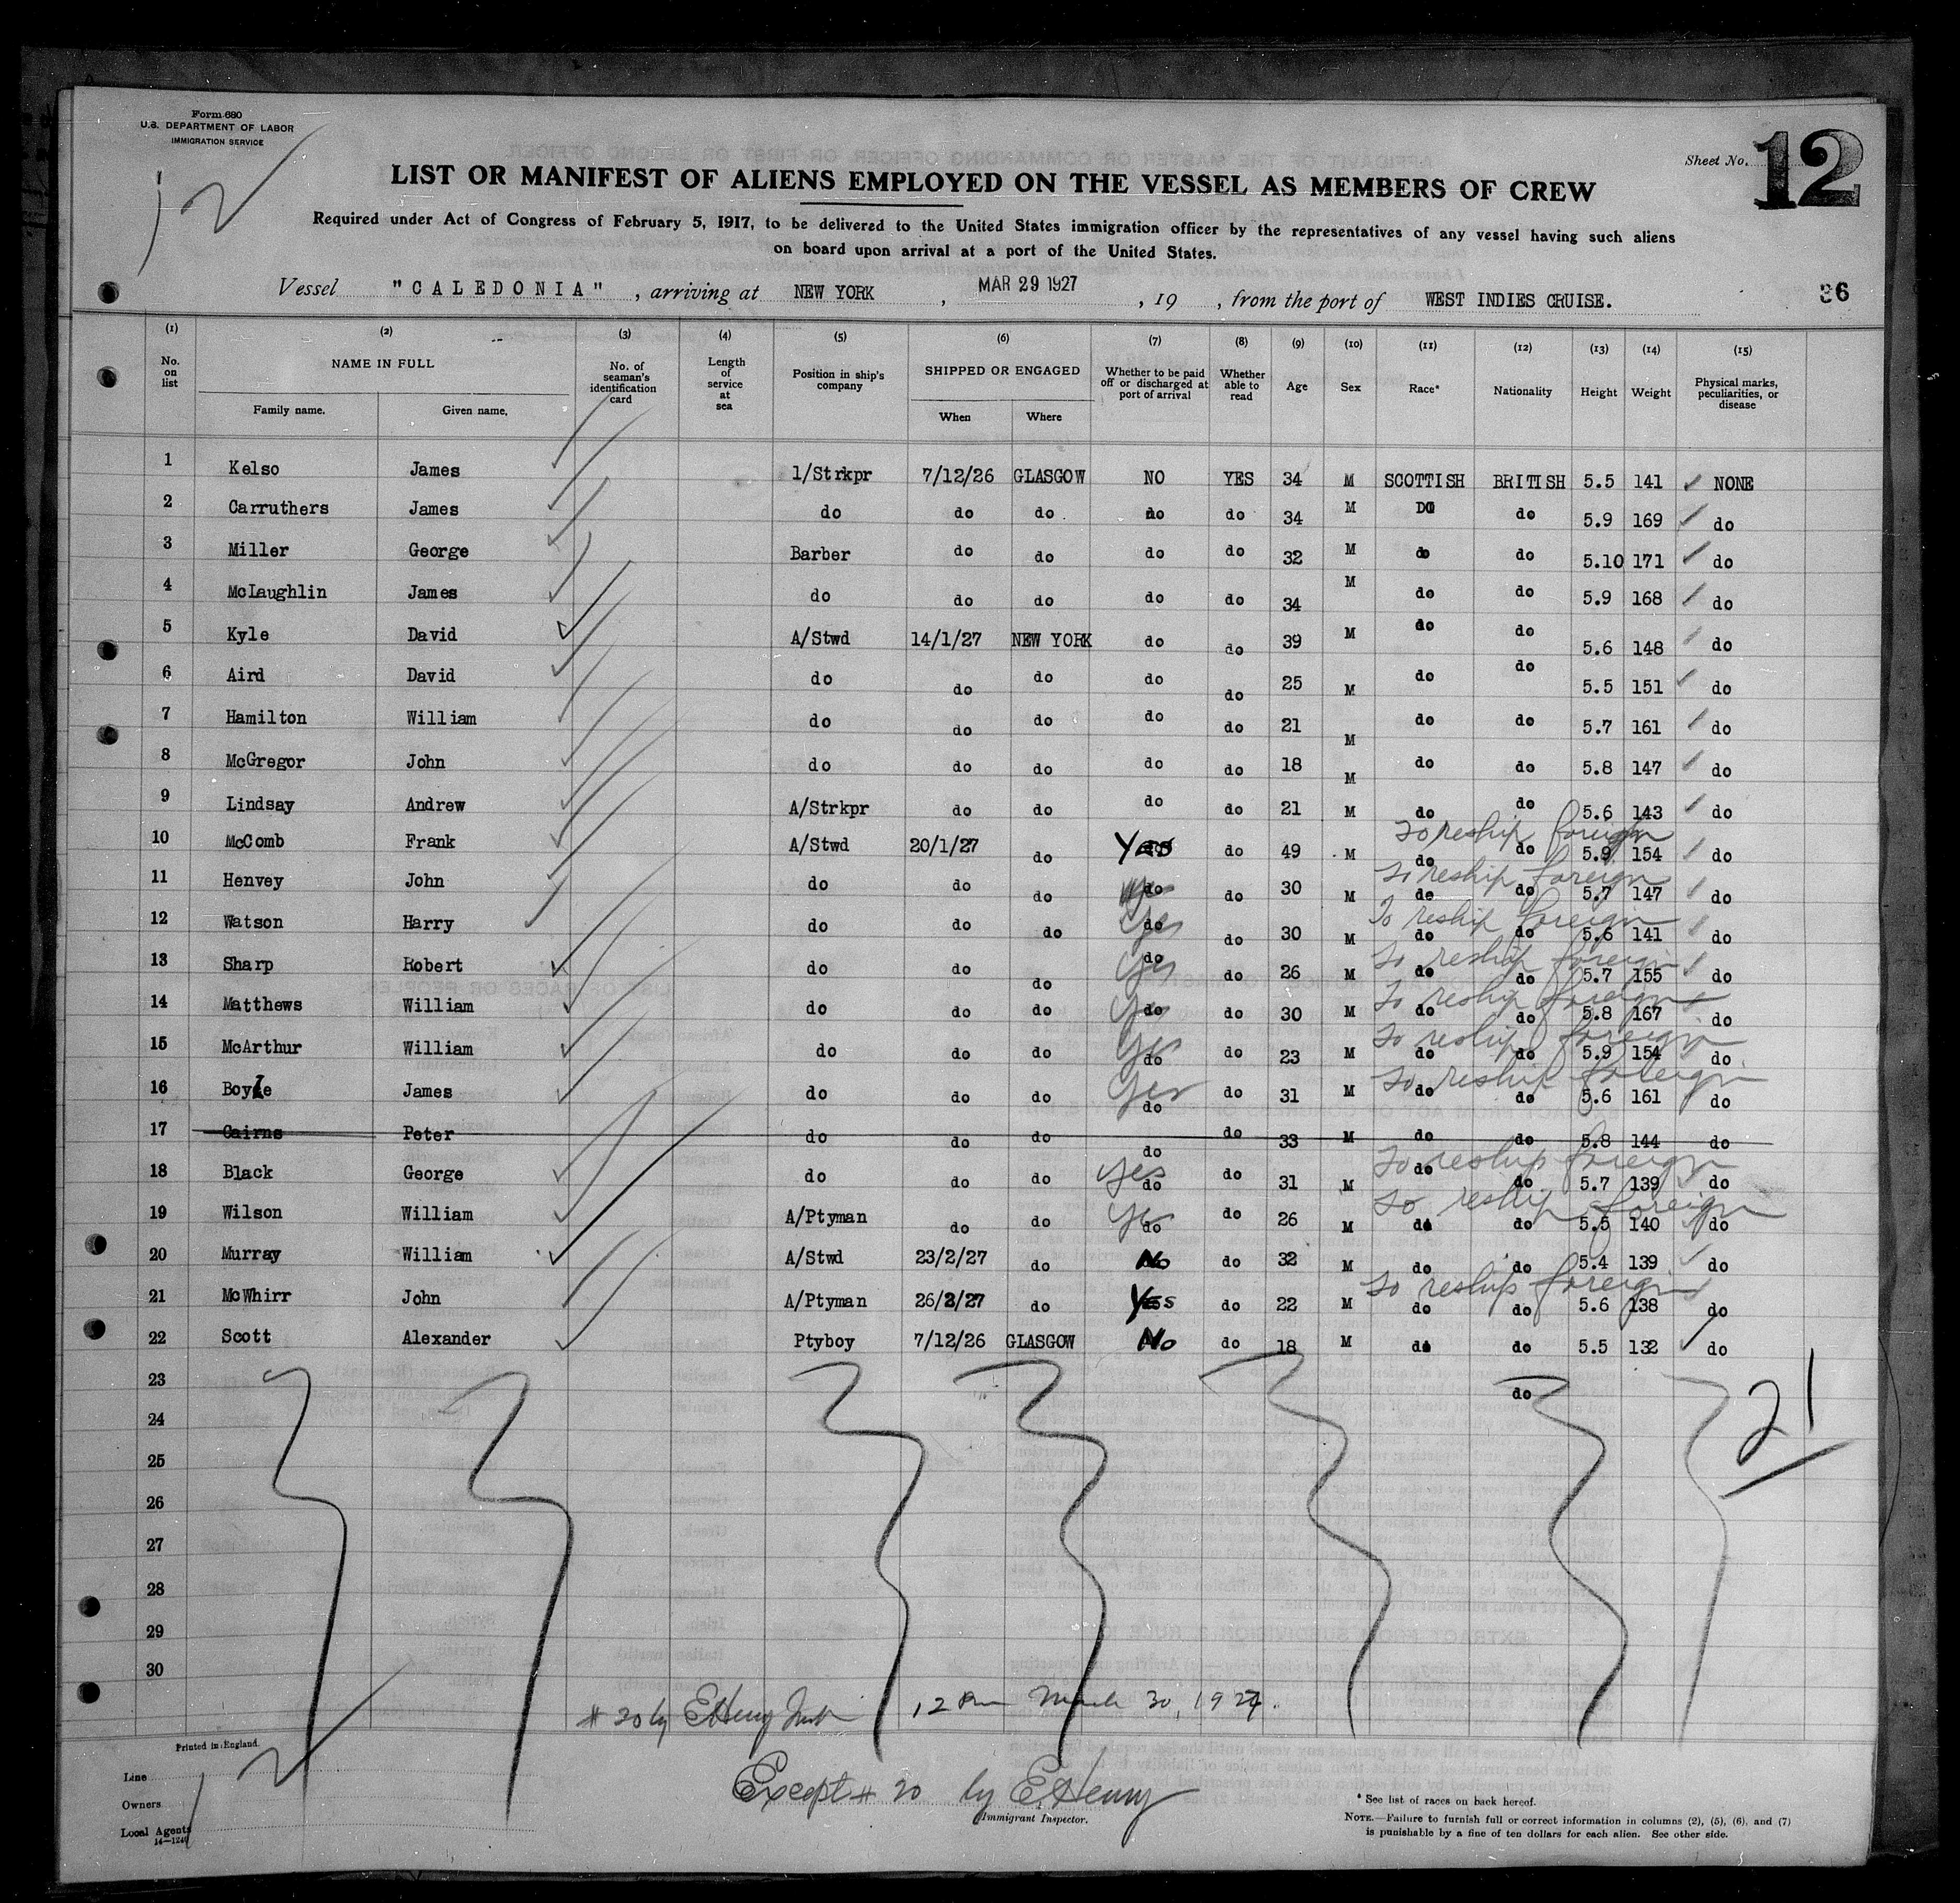 Form 680
U.S. DEPARTMENT OF LABOR
IMMIGRATION SERVICE
Sheet No. 12
12
LIST OR MANIFEST OF ALIENS EMPLOYED ON THE VESSEL AS MEMBERS OF CREW
Required under Act of Congress of February 5, 1917, to be delivered to the United States immigration officer by the representatives of any vessel having such aliens
on board upon arrival at a port of the United States.
Vessel "CALEDONIA", arriving at NEW YORK, MAR 29 1927, 19 , from the port of WEST INDIES CRUISE. 36
(1) (2) (3) (4) (5) (6) (7) (8) (9) (10) (11) (12) (13) (14) (15)
No. on list NAME IN FULL Family name. Given name. No. of seaman's identification card Length of service at sea Position in ship's company SHIPPED OR ENGAGED When Where Whether to be paid off or discharged at port of arrival Whether able to read Age Sex Race* Nationality Height Weight Physical marks, peculiarities, or disease
1 Kelso James 1/Strkpr 7/12/26 GLASGOW NO YES 34 M SCOTTISH BRITISH 5.5 141 NONE
2 Carruthers James do do do do do 34 M DO do 5.9 169 do
3 Miller George Barber do do do do 32 M do do 5.10 171 do
4 McLaughlin James do do do do do 34 M do do 5.9 168 do
5 Kyle David A/Stwd 14/1/27 NEW YORK do do 39 M do do 5.6 148 do
6 Aird David do do do do do 25 M do do 5.5 151 do
7 Hamilton William do do do do do 21 M do do 5.7 161 do
8 McGregor John do do do do do 18 M do do 5.8 147 do
9 Lindsay Andrew A/Strkpr do do do do 21 M do do 5.6 143 do
To reship foreign
10 McComb Frank A/Stwd 20/1/27 do Yes do 49 M do do 5.9 154 do
To reship foreign
11 Henvey John do do do do do 30 M de do 5.7 147 do
To reship foreign
12 Watson Harry do do do do Yes do 30 M do do 5.6 141 do
To reship foreign
13 Sharp Robert do do do do Yes do 26 M do do 5.7 155 do
To reship foreign
14 Matthews William do do do do Yes do 30 M do do 5.8 167 do
To reship foreign
15 McArthur William do do do do Yes do 23 M do do 5.9 154 do
To reship foreign
16 Boyle James do do do do Yes do 31 M do do 5.6 161 do
17 Cairns Peter do do do do do 33 M do do 5.8 144 do
To reship foreign
18 Black George do do do do Yes do 31 M do do 5.7 139 do
To reship foreign
19 Wilson William A/Ptyman do do do Yes do 26 M do do 5.5 140 do
20 Murray William A/Stwd 23/2/27 do No do 32 M do do 5.4 139 do
To reship foreign
21 McWhirr John A/Ptyman 26/2/27 do Yes do 22 M do do 5.6 138 do
22 Scott Alexander Ptyboy 7/12/26 GLASGOW No do 18 M do do 5.5 132 do
23 do
21
24
25
26
27
28
29
30
# 20 by E Henry 12 Pm March 30, 1927.
Printed in England.
Line
Owners
Local Agents
14—1240
Except # 20 by E Henry
Immigrant Inspector.
* See list of races on back hereof.
NOTE.—Failure to furnish full or correct information in columns (2), (5), (6), and (7)
is punishable by a fine of ten dollars for each alien. See other side.